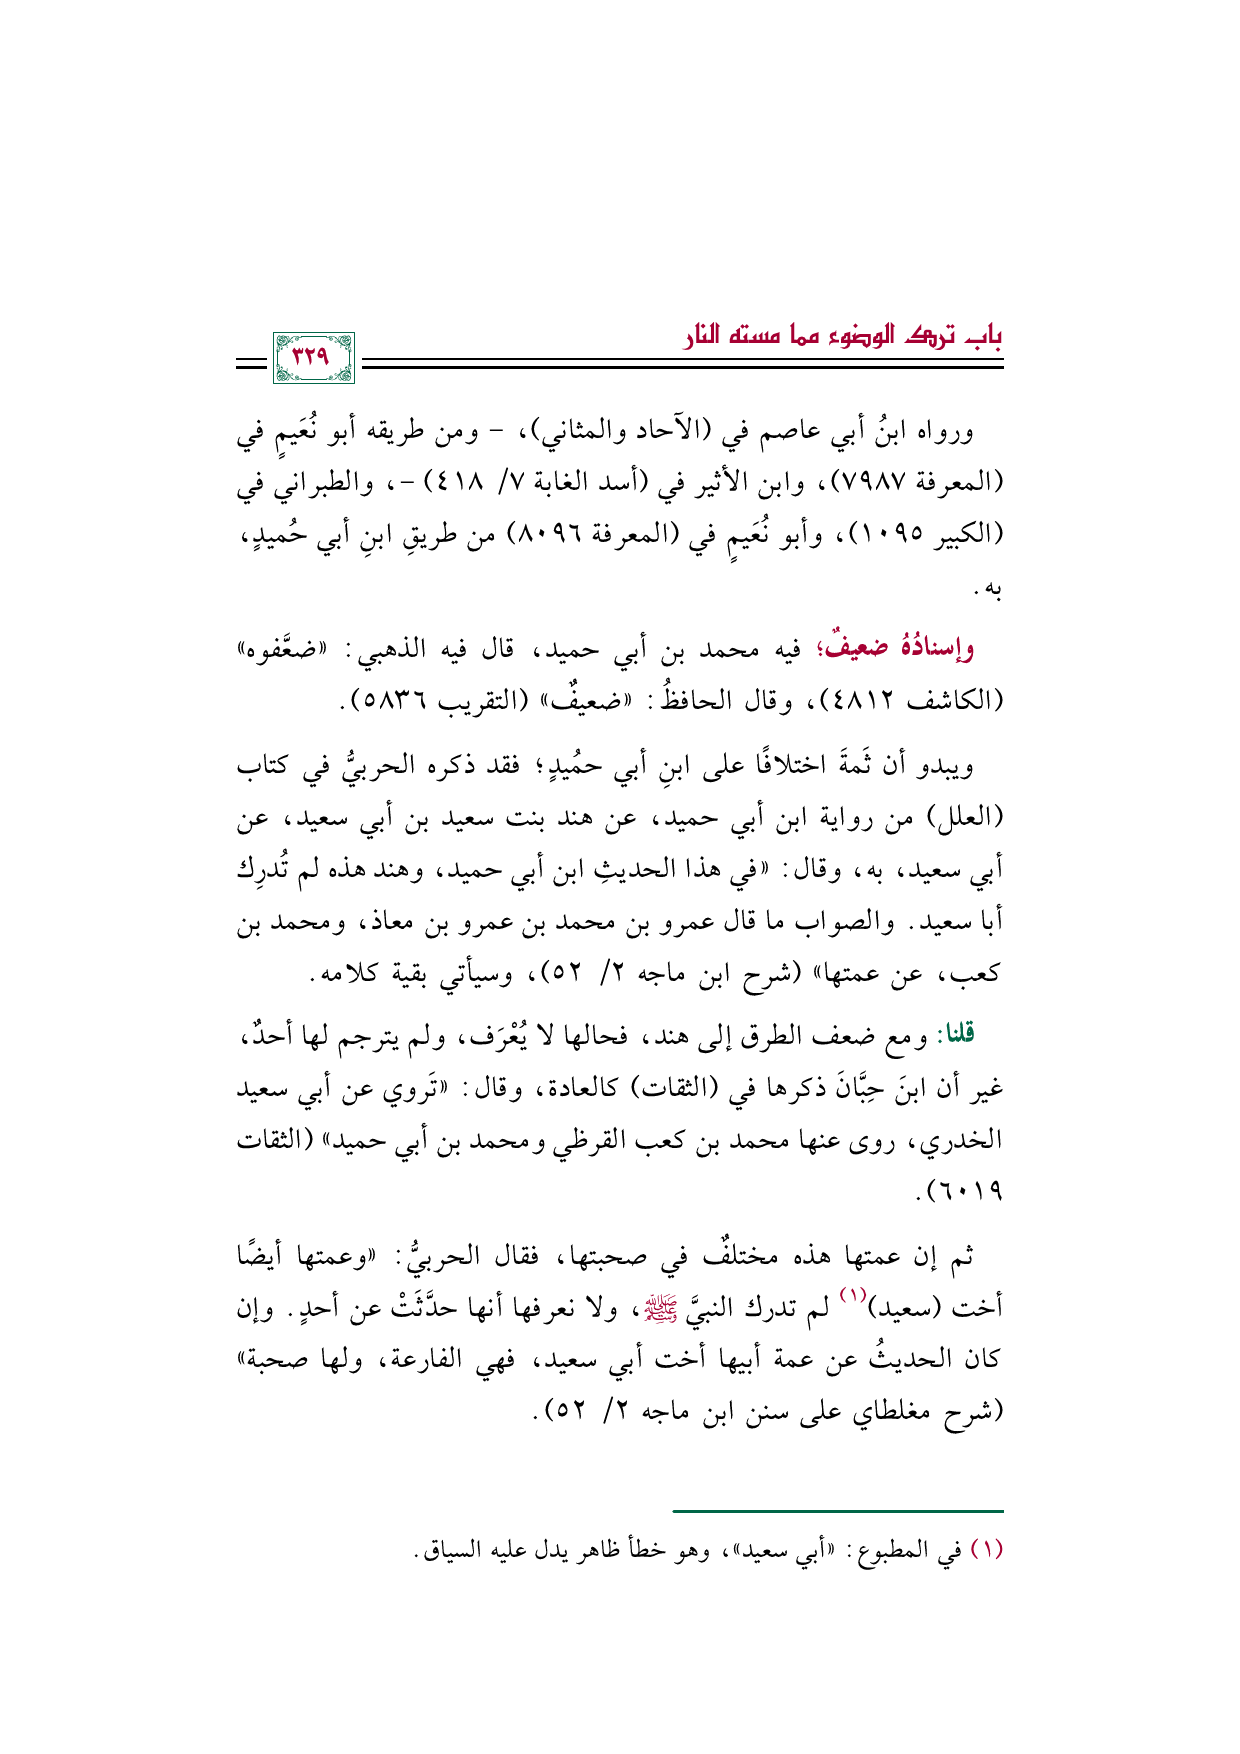 باب ترك الوضوء مما مسته النار
٣٢٩
ورواه ابنُ أبي عاصم في (الآحاد والمثاني)، – ومن طريقه أبو نُعَيمٍ في
(المعرفة ٧٩٨٧)، وابن الأثير في (أسد الغابة ٧/ ٤١٨) –، والطبراني في
(الكبير ١٠٩٥)، وأبو نُعَيمٍ في (المعرفة ٨٠٩٦) من طريقِ ابنِ أبي حُميدٍ،
به.
وإسنادُهُ ضعيفٌ؛ فيه محمد بن أبي حميد، قال فيه الذهبي: «ضعَّفوه»
(الكاشف ٤٨١٢)، وقال الحافظُ: «ضعيفٌ» (التقريب ٥٨٣٦).
ويبدو أن ثَمةَ اختلافًا على ابنِ أبي حمُيدٍ؛ فقد ذكره الحربيُّ في كتاب
(العلل) من رواية ابن أبي حميد، عن هند بنت سعيد بن أبي سعيد، عن
أبي سعيد، به، وقال: «في هذا الحديثِ ابن أبي حميد، وهند هذه لم تُدرِك
أبا سعيد. والصواب ما قال عمرو بن محمد بن عمرو بن معاذ، ومحمد بن
كعب، عن عمتها» (شرح ابن ماجه ٢/ ٥٢)، وسيأتي بقية كلامه.
قلنا: ومع ضعف الطرق إلى هند، فحالها لا يُعْرَف، ولم يترجم لها أحدٌ،
غير أن ابنَ حِبَّانَ ذكرها في (الثقات) كالعادة، وقال: «تَروي عن أبي سعيد
الخدري، روى عنها محمد بن كعب القرظي ومحمد بن أبي حميد» (الثقات
٦٠١٩).
ثم إن عمتها هذه مختلفٌ في صحبتها، فقال الحربيُّ: «وعمتها أيضًا
أخت (سعيد)(١) لم تدرك النبيَّ ﷺ، ولا نعرفها أنها حدَّثَتْ عن أحدٍ. وإن
كان الحديثُ عن عمة أبيها أخت أبي سعيد، فهي الفارعة، ولها صحبة»
(شرح مغلطاي على سنن ابن ماجه ٢/ ٥٢).
(١) في المطبوع: «أبي سعيد»، وهو خطأ ظاهر يدل عليه السياق.